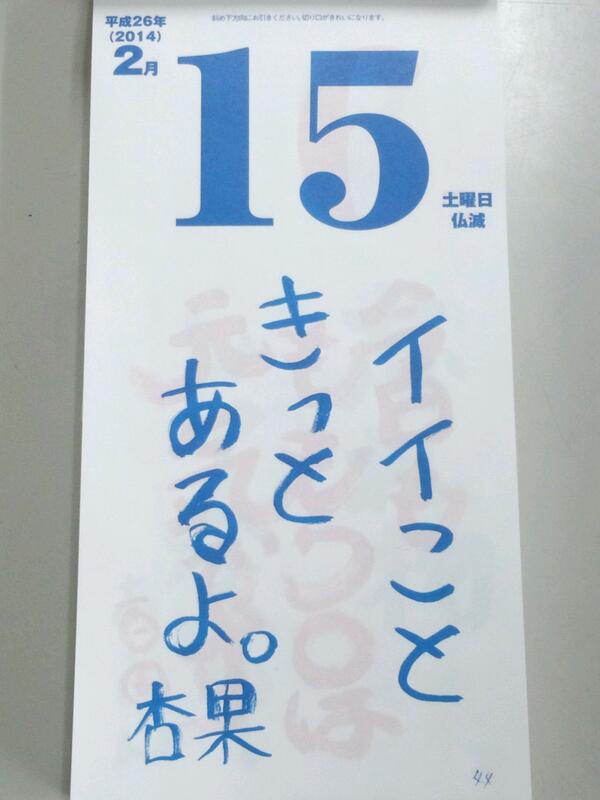 平成26年
(2014)
2月
斜め下方向にお引きください。切り口がきれいになります。
15
土曜日
仏滅
イイこと
きっと
あるよ。
杏果
44